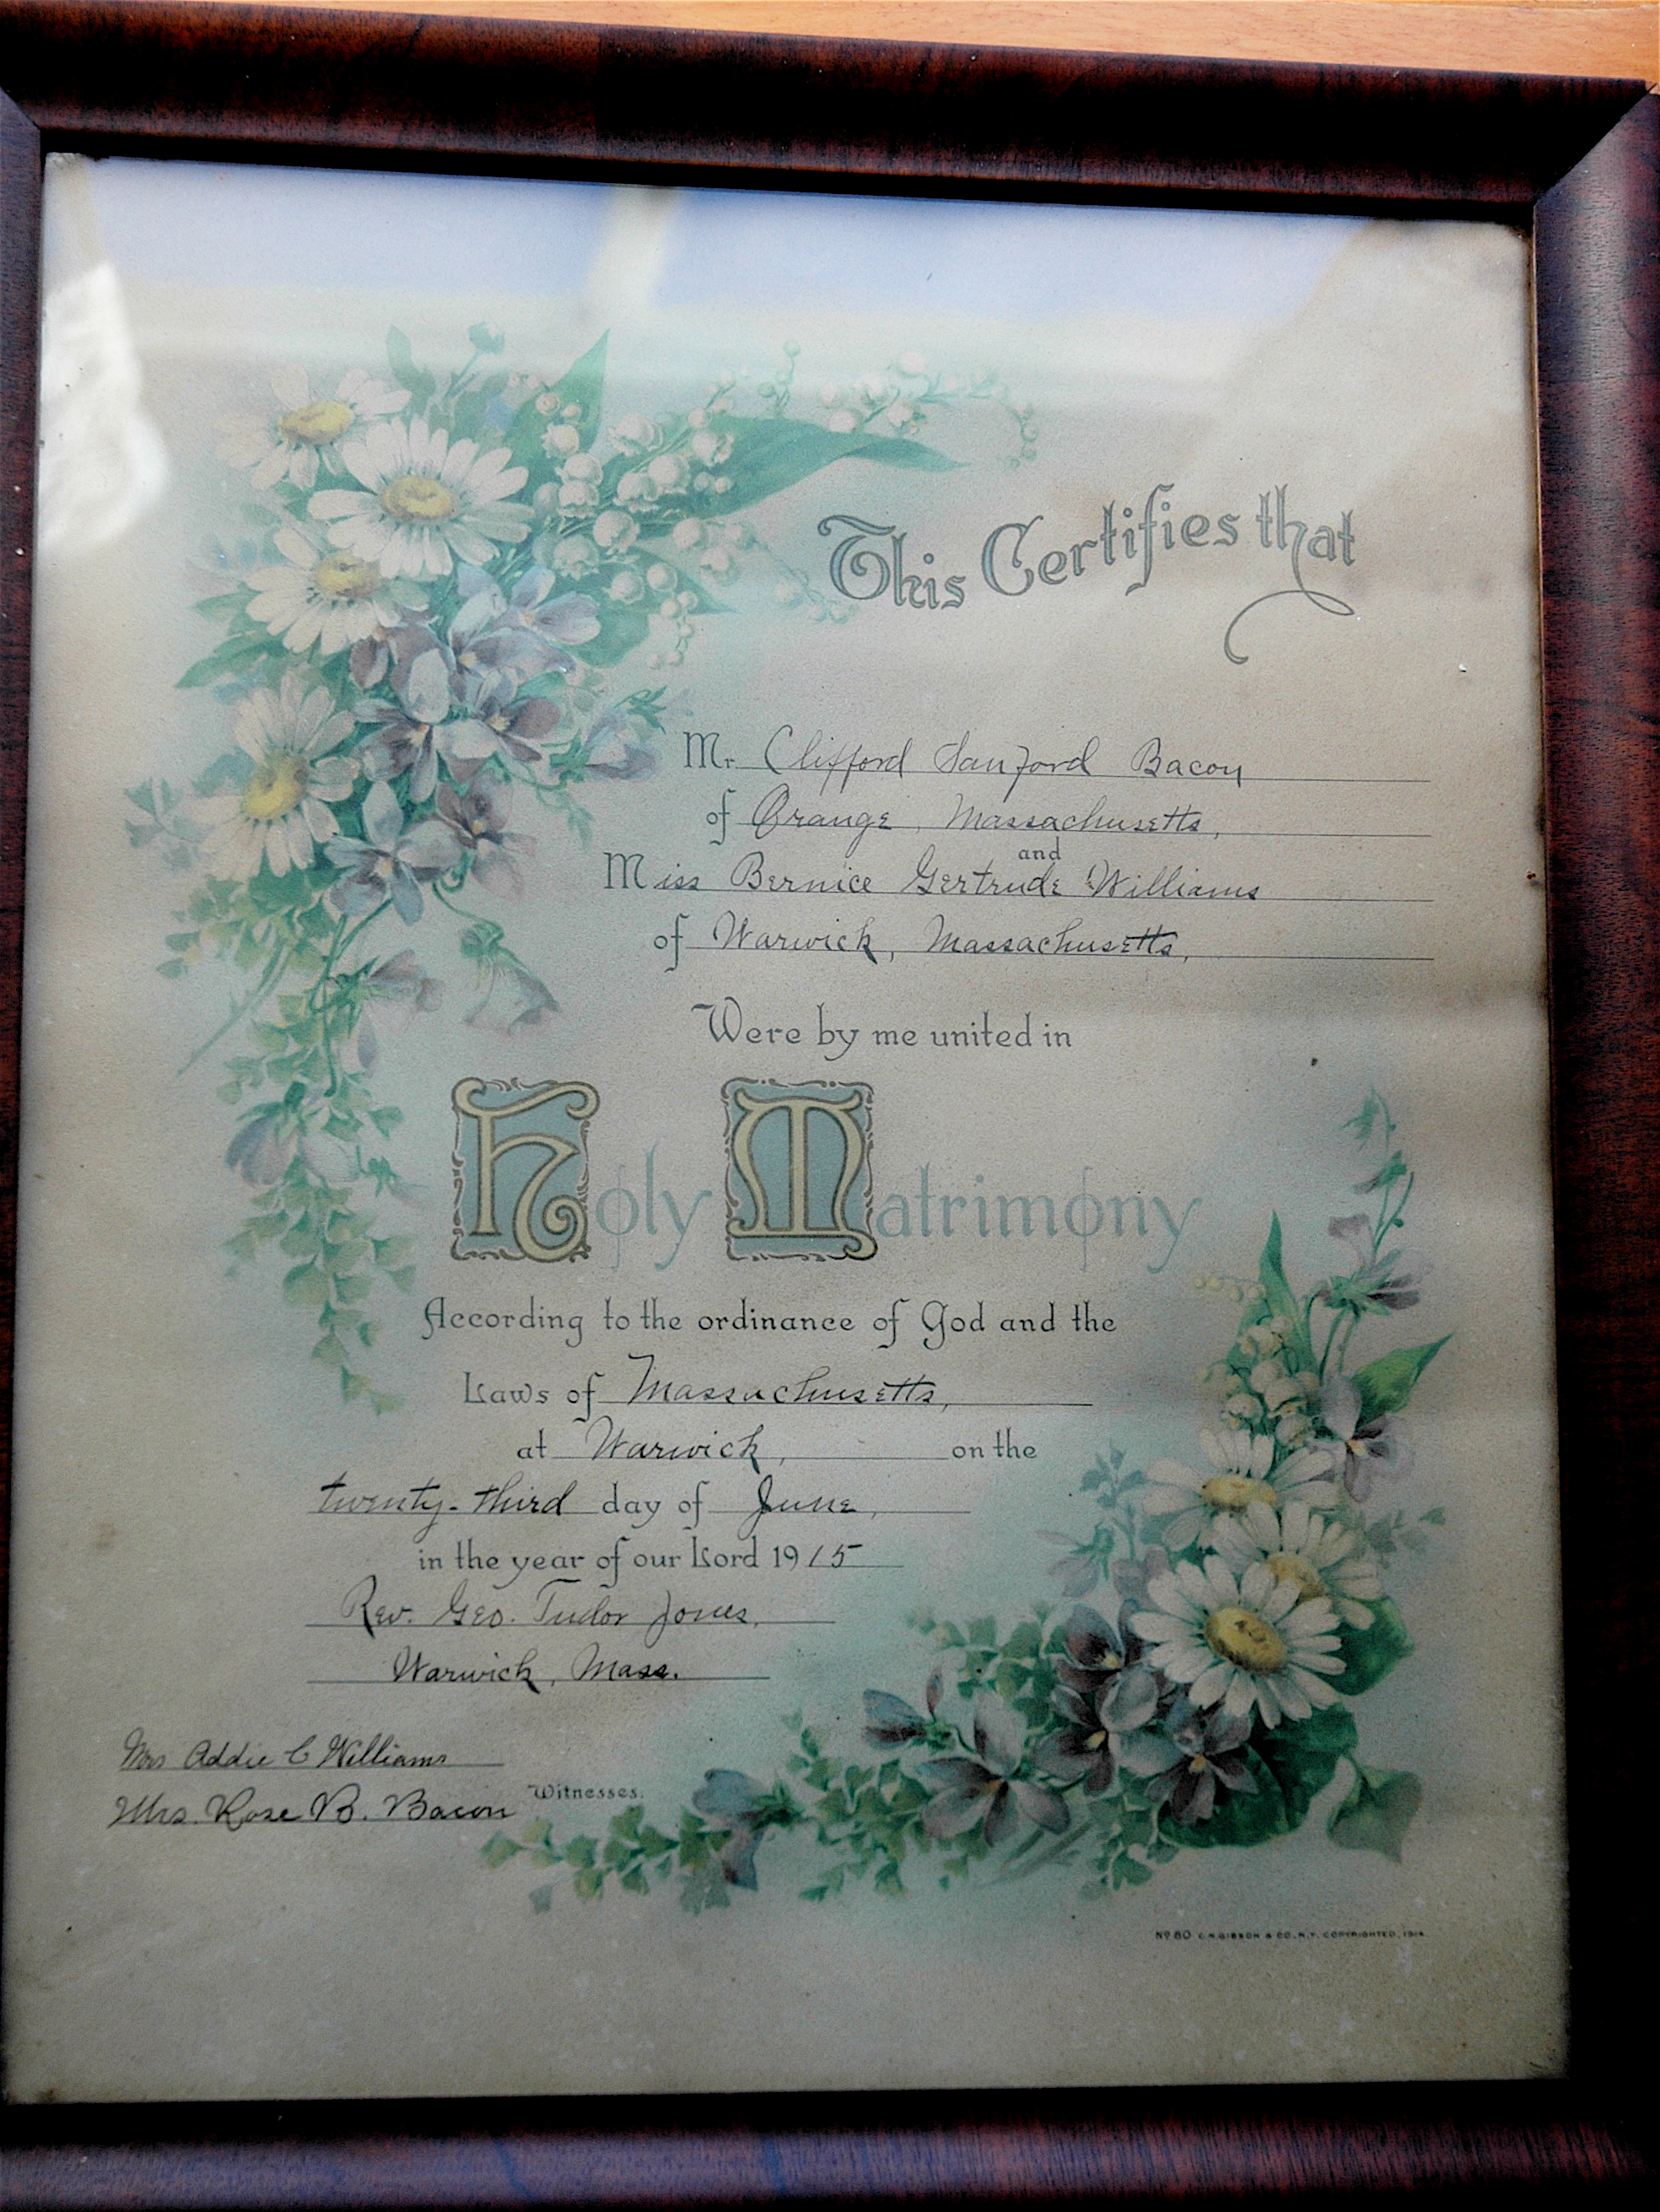 This Certifies that
Mr Clifford Sanford Bacon
of Orange, Massachusetts,
and
Miss Bernice Gertrude Williams
of Warwick, Massachusetts,
Were by me united in
Holy Matrimony
According to the ordinance of God and the
Laws of Massachusetts,
at Warwick, on the
twenty-third day of June,
in the year of our Lord 1915
Rev. Geo. Tudor Jones,
Warwick, Mass.
Mrs Addie C Williams
Mrs. Rose B. Bacon
Witnesses.
No. 80 C.R. GIBSON & CO., N.Y. COPYRIGHTED,